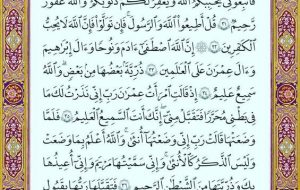 فَاتَّبِعُونِي يُحْبِبْكُمُ ٱللَّهُ وَيَغْفِرْ لَكُمْ ذُنُوبَكُمْ وَٱللَّهُ غَفُورٌ
رَّحِيمٌ ٣١ قُلْ أَطِيعُوا۟ ٱللَّهَ وَٱلرَّسُولَ فَإِن تَوَلَّوْا۟ فَإِنَّ ٱللَّهَ لَا يُحِبُّ
ٱلْكَٰفِرِينَ ٣٢ ۞ إِنَّ ٱللَّهَ ٱصْطَفَىٰٓ ءَادَمَ وَنُوحًا وَءَالَ إِبْرَٰهِيمَ
وَءَالَ عِمْرَٰنَ عَلَى ٱلْعَٰلَمِينَ ٣٣ ذُرِّيَّةًۢ بَعْضُهَا مِنۢ بَعْضٍ وَٱللَّهُ
سَمِيعٌ عَلِيمٌ ٣٤ إِذْ قَالَتِ ٱمْرَأَتُ عِمْرَٰنَ رَبِّ إِنِّي نَذَرْتُ لَكَ مَا
فِي بَطْنِي مُحَرَّرًا فَتَقَبَّلْ مِنِّيٓ إِنَّكَ أَنتَ ٱلسَّمِيعُ ٱلْعَلِيمُ ٣٥ فَلَمَّا
وَضَعَتْهَا قَالَتْ رَبِّ إِنِّي وَضَعْتُهَآ أُنثَىٰ وَٱللَّهُ أَعْلَمُ بِمَا وَضَعَتْ
وَلَيْسَ ٱلذَّكَرُ كَٱلْأُنثَىٰ وَإِنِّي سَمَّيْتُهَا مَرْيَمَ وَإِنِّيٓ أُعِيذُهَا بِكَ
وَذُرِّيَّتَهَا مِنَ ٱلشَّيْطَٰنِ ٱلرَّجِيمِ ٣٦ فَتَقَبَّلَهَا رَبُّهَا بِقَبُولٍ